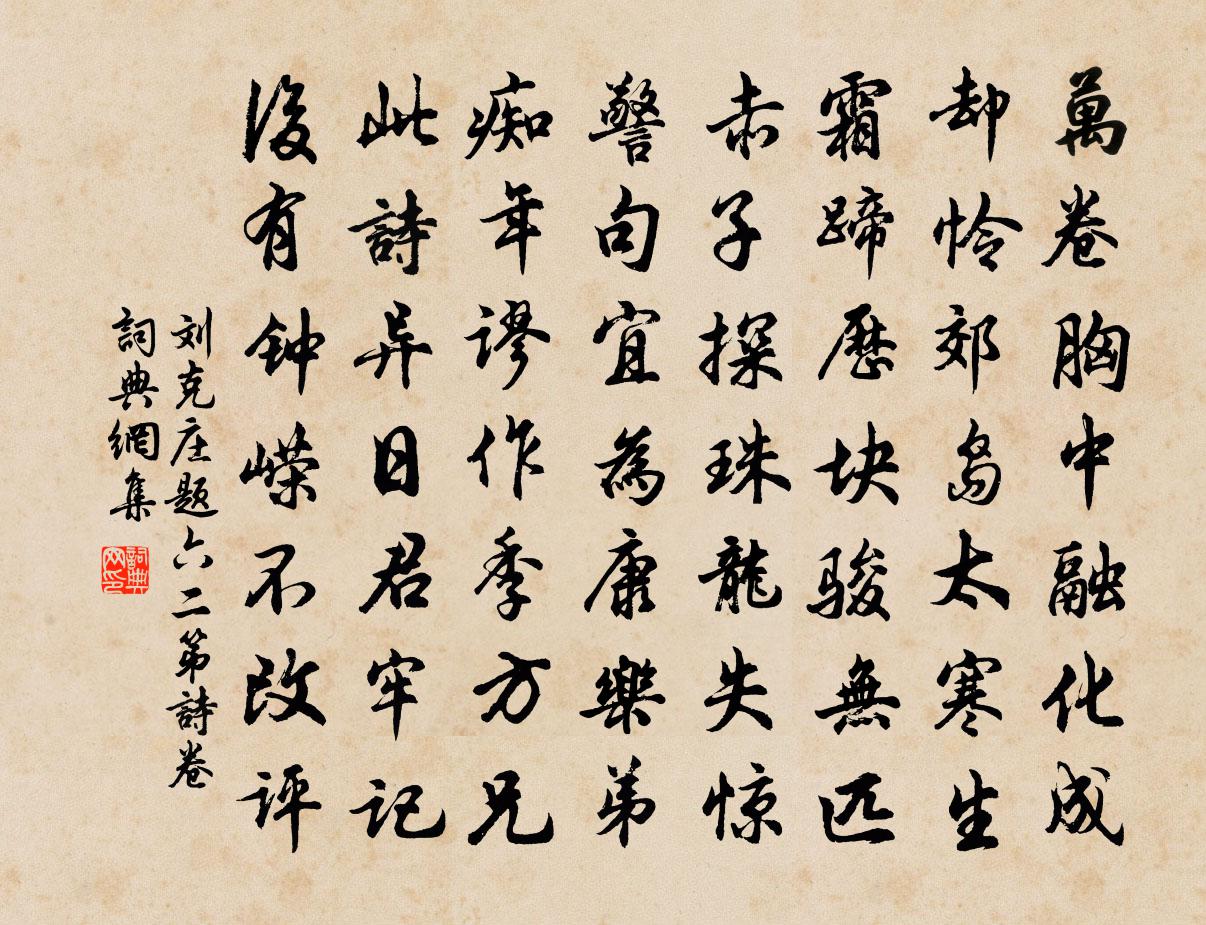 萬卷胸中融化成
却怜郊岛太寒生
霜蹄歷块骏無匹
赤子探珠龍失惊
警句宜為康樂弟
痴年谬作季方兄
此詩异日君牢记
後有钟嵘不改评
刘克庄题六二第詩卷
詞典網集
詞典网印